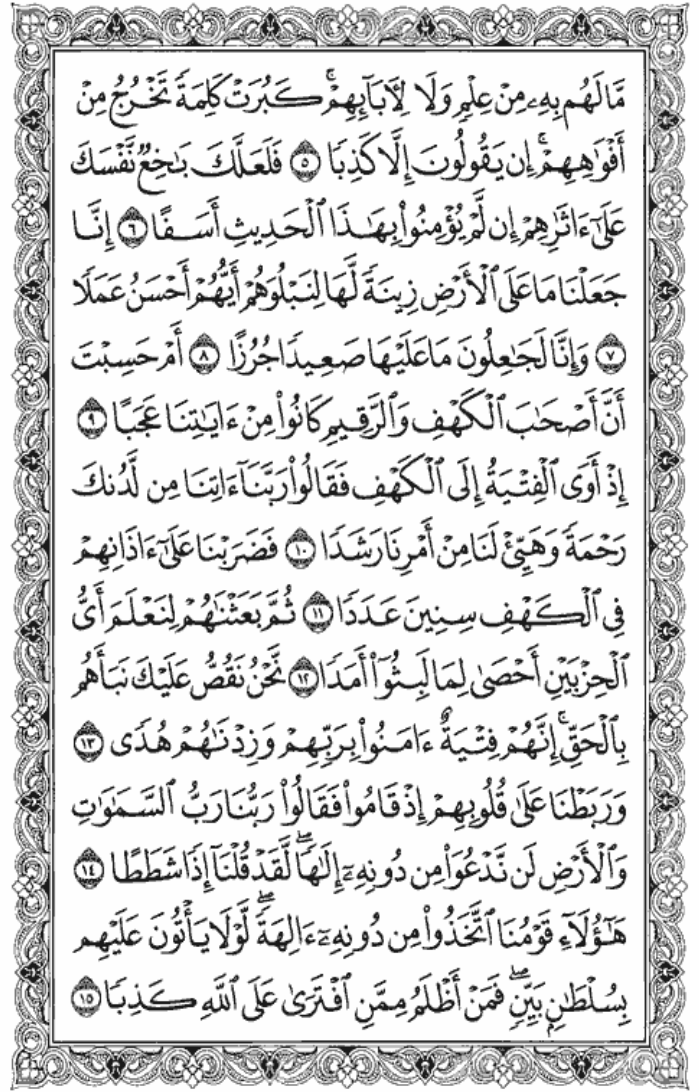 مَّا لَهُم بِهِۦ مِنْ عِلْمٍ وَلَا لِأَبَآئِهِمْۚ كَبُرَتْ كَلِمَةً تَخْرُجُ مِنْ
أَفْوَٰهِهِمْۚ إِن يَقُولُونَ إِلَّا كَذِبًا ٥ فَلَعَلَّكَ بَٰخِعٌ نَّفْسَكَ
عَلَىٰٓ ءَاثَٰرِهِمْ إِن لَّمْ يُؤْمِنُوا۟ بِهَٰذَا ٱلْحَدِيثِ أَسَفًا ٦ إِنَّا
جَعَلْنَا مَا عَلَى ٱلْأَرْضِ زِينَةً لَّهَا لِنَبْلُوَهُمْ أَيُّهُمْ أَحْسَنُ عَمَلًا
٧ وَإِنَّا لَجَٰعِلُونَ مَا عَلَيْهَا صَعِيدًا جُرُزًا ٨ أَمْ حَسِبْتَ
أَنَّ أَصْحَٰبَ ٱلْكَهْفِ وَٱلرَّقِيمِ كَانُوا۟ مِنْ ءَايَٰتِنَا عَجَبًا ٩
إِذْ أَوَى ٱلْفِتْيَةُ إِلَى ٱلْكَهْفِ فَقَالُوا۟ رَبَّنَآ ءَاتِنَا مِن لَّدُنكَ
رَحْمَةً وَهَيِّئْ لَنَا مِنْ أَمْرِنَا رَشَدًا ١٠ فَضَرَبْنَا عَلَىٰٓ ءَاذَانِهِمْ
فِى ٱلْكَهْفِ سِنِينَ عَدَدًا ١١ ثُمَّ بَعَثْنَٰهُمْ لِنَعْلَمَ أَىُّ
ٱلْحِزْبَيْنِ أَحْصَىٰ لِمَا لَبِثُوٓا۟ أَمَدًا ١٢ نَّحْنُ نَقُصُّ عَلَيْكَ نَبَأَهُم
بِٱلْحَقِّۚ إِنَّهُمْ فِتْيَةٌ ءَامَنُوا۟ بِرَبِّهِمْ وَزِدْنَٰهُمْ هُدًى ١٣
وَرَبَطْنَا عَلَىٰ قُلُوبِهِمْ إِذْ قَامُوا۟ فَقَالُوا۟ رَبُّنَا رَبُّ ٱلسَّمَٰوَٰتِ
وَٱلْأَرْضِ لَن نَّدْعُوَا۟ مِن دُونِهِۦٓ إِلَٰهًاۖ لَّقَدْ قُلْنَآ إِذًا شَطَطًا ١٤
هَٰٓؤُلَآءِ قَوْمُنَا ٱتَّخَذُوا۟ مِن دُونِهِۦٓ ءَالِهَةًۖ لَّوْلَا يَأْتُونَ عَلَيْهِم
بِسُلْطَٰنٍۭ بَيِّنٍۖ فَمَنْ أَظْلَمُ مِمَّنِ ٱفْتَرَىٰ عَلَى ٱللَّهِ كَذِبًا ١٥